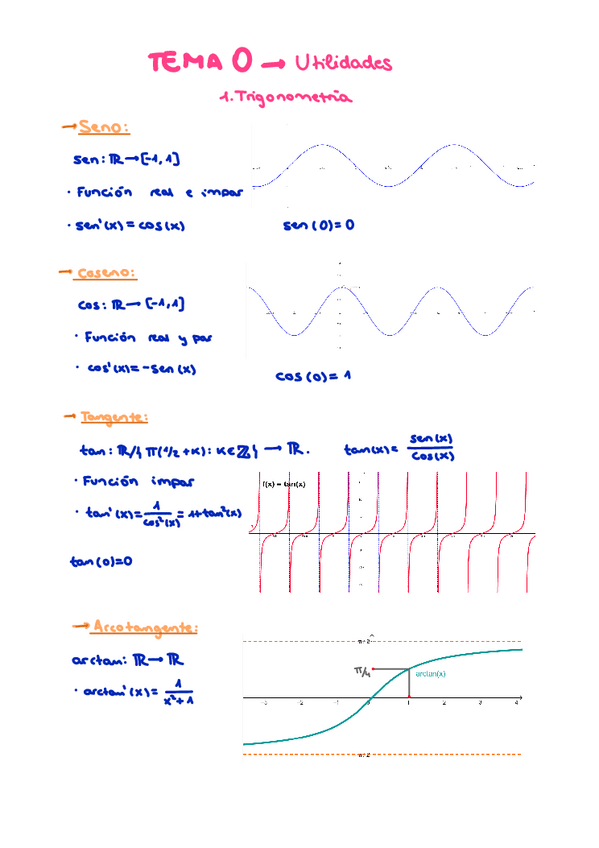 TEMA 0 → Utilidades
1. Trigonometría
→ Seno:
sen: ℝ → [-1, 1]
· Función real e impar
· sen'(x) = cos(x)
sen (0) = 0
→ Coseno:
cos: ℝ → [-1, 1]
· Función real y par
· cos'(x) = -sen (x)
cos (0) = 1
→ Tangente:
tan: ℝ/{π(1/2 + K): K ∈ ℤ} → ℝ. tan(x) = sen(x)/cos(x)
· Función impar
· tan'(x) = 1/cos²(x) = 1+tan²(x)
f(x) = tan(x)
tan (0) = 0
→ Arcotangente:
arctan: ℝ → ℝ
· arctan'(x) = 1/x²+1
π/4
arctan(x)
-3 -2 -1 0 1 2 3 4